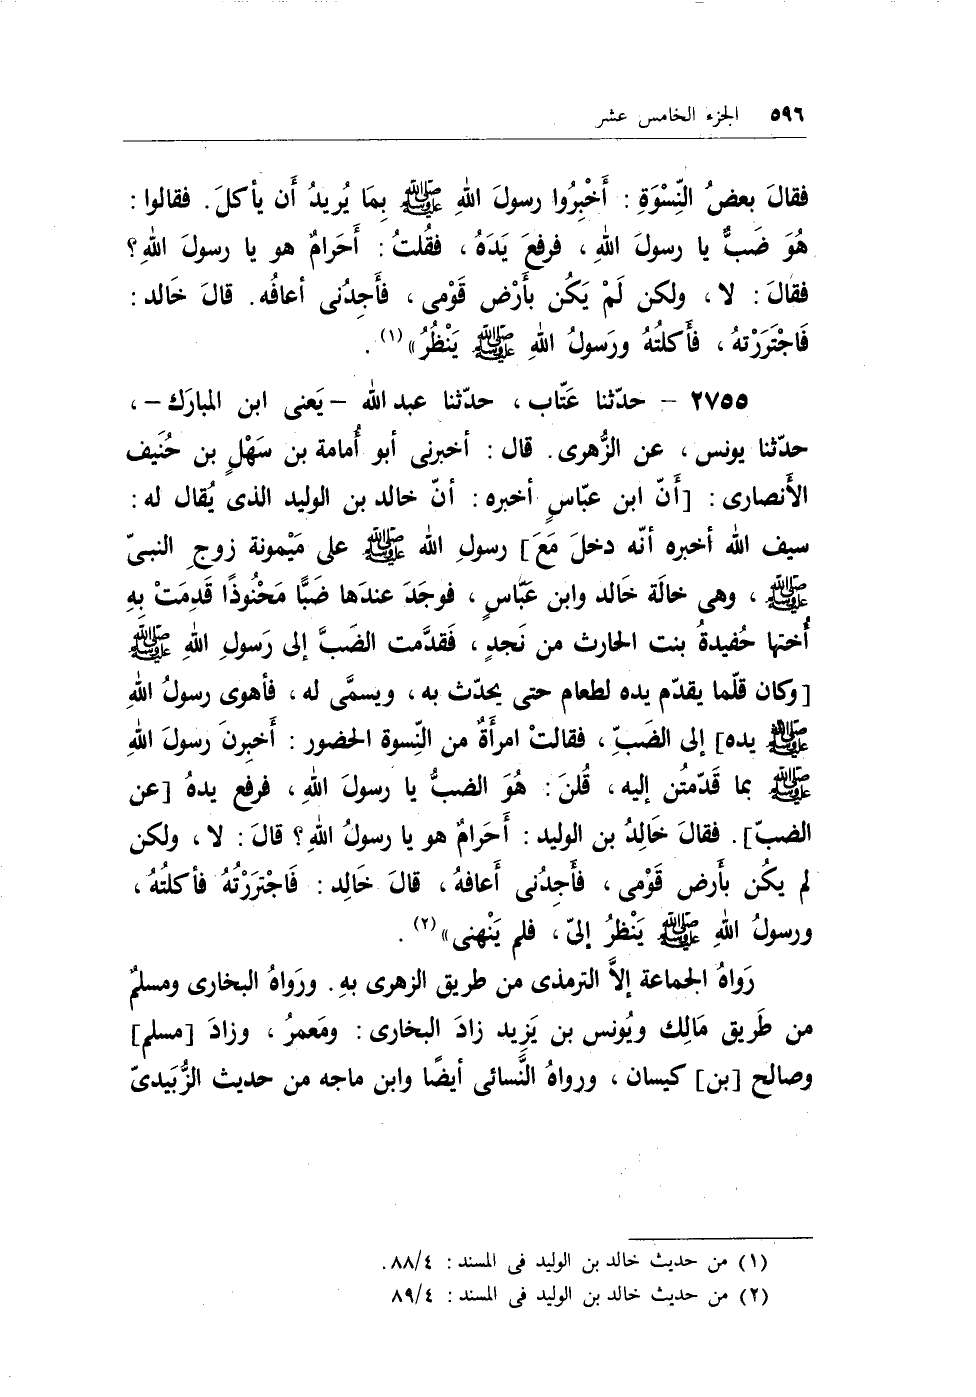 ٥٩٦ الجزء الخامس عشر
فقالَ بعضُ النِّسْوَةِ : أَخْبِرُوا رسولَ اللهِ ﷺ بِمَا يُرِيدُ أَن يأكلَ . فقالوا :
هُوَ ضَبٌّ يا رسولَ اللهِ ، فرفعَ يَدَهُ ، فقُلتُ : أَحَرامٌ هو يا رسولَ اللهِ ؟
فقالَ : لا ، ولكن لَمْ يَكُن بأَرْضِ قَوْمى ، فأَجِدُنى أعافُه . قالَ خَالد :
فَاجْتَرَرْتهُ ، فأَكلتُهُ ورَسولُ اللهِ ﷺ يَنْظُرُ » (١) .
٢٧٥٥ – حدّثنا عَتّاب ، حدّثنا عبد الله – يَعنى ابن المبارَك – ،
حدّثنا يونس ، عن الزُّهرى . قال : أخبرنى أبو أُمامة بن سَهْلٍ بن حُنَيف
الأَنصارى : [ أَنّ ابن عبّاسٍ أخبره : أنّ خالد بن الوليد الذى يُقال له :
سيف الله أخبره أنّه دخلَ مَعَ ] رسولِ الله ﷺ على مَيْمونة زوجِ النبىّ
ﷺ ، وهى خالَة خَالد وابن عَبّاسٍ ، فوجَدَ عندَها ضَبًّا مَحْنُوذًا قَدِمَتْ بِهِ
أُختها حُفيدةُ بنت الحارث من نَجدٍ ، فَقدَّمت الضَبَّ إلى رَسولِ اللهِ ﷺ
[ وكان قلّما يقدّم يده لطعام حتى يحدّث به ، ويسمَّى له ، فأهوى رسولُ اللهِ
ﷺ يده ] إلى الضَبِّ ، فقالتْ امرأَةٌ من النِّسوة الحضور : أَخبِرنَ رسولَ اللهِ
ﷺ بما قَدّمتُن إليه ، قُلنَ : هُوَ الضبُّ يا رسولَ اللهِ ، فرفع يدهُ [ عن
الضبّ ] . فقالَ خَالِدُ بن الوليد : أَحَرامٌ هو يا رسولُ اللهِ ؟ قالَ : لا ، ولكن
لم يكُن بأَرض قَوْمى ، فأَجِدُنى أَعافهُ ، قالَ خَالِد : فَاجْتَرَرْتُهُ فأكلتُهُ ،
ورسولُ اللهِ ﷺ يَنْظرُ إلىّ ، فلم يَنْهنى » (٢) .
رَواهُ الجماعة إلاَّ الترمذى من طريق الزهرى بهِ . ورَواهُ البخارى ومسلمٌ
من طَريق مَالِك ويُونس بن يَزِيد زادَ البخارى : ومَعمرُ ، وزادَ [ مسلم ]
وصالح [ بن ] كيسان ، ورواهُ النَّسائى أيضًا وابن ماجه من حديث الزُّبَيدىّ
(١) من حديث خالد بن الوليد فى المسند : ٨٨/٤ .
(٢) من حديث خالد بن الوليد فى المسند : ٨٩/٤